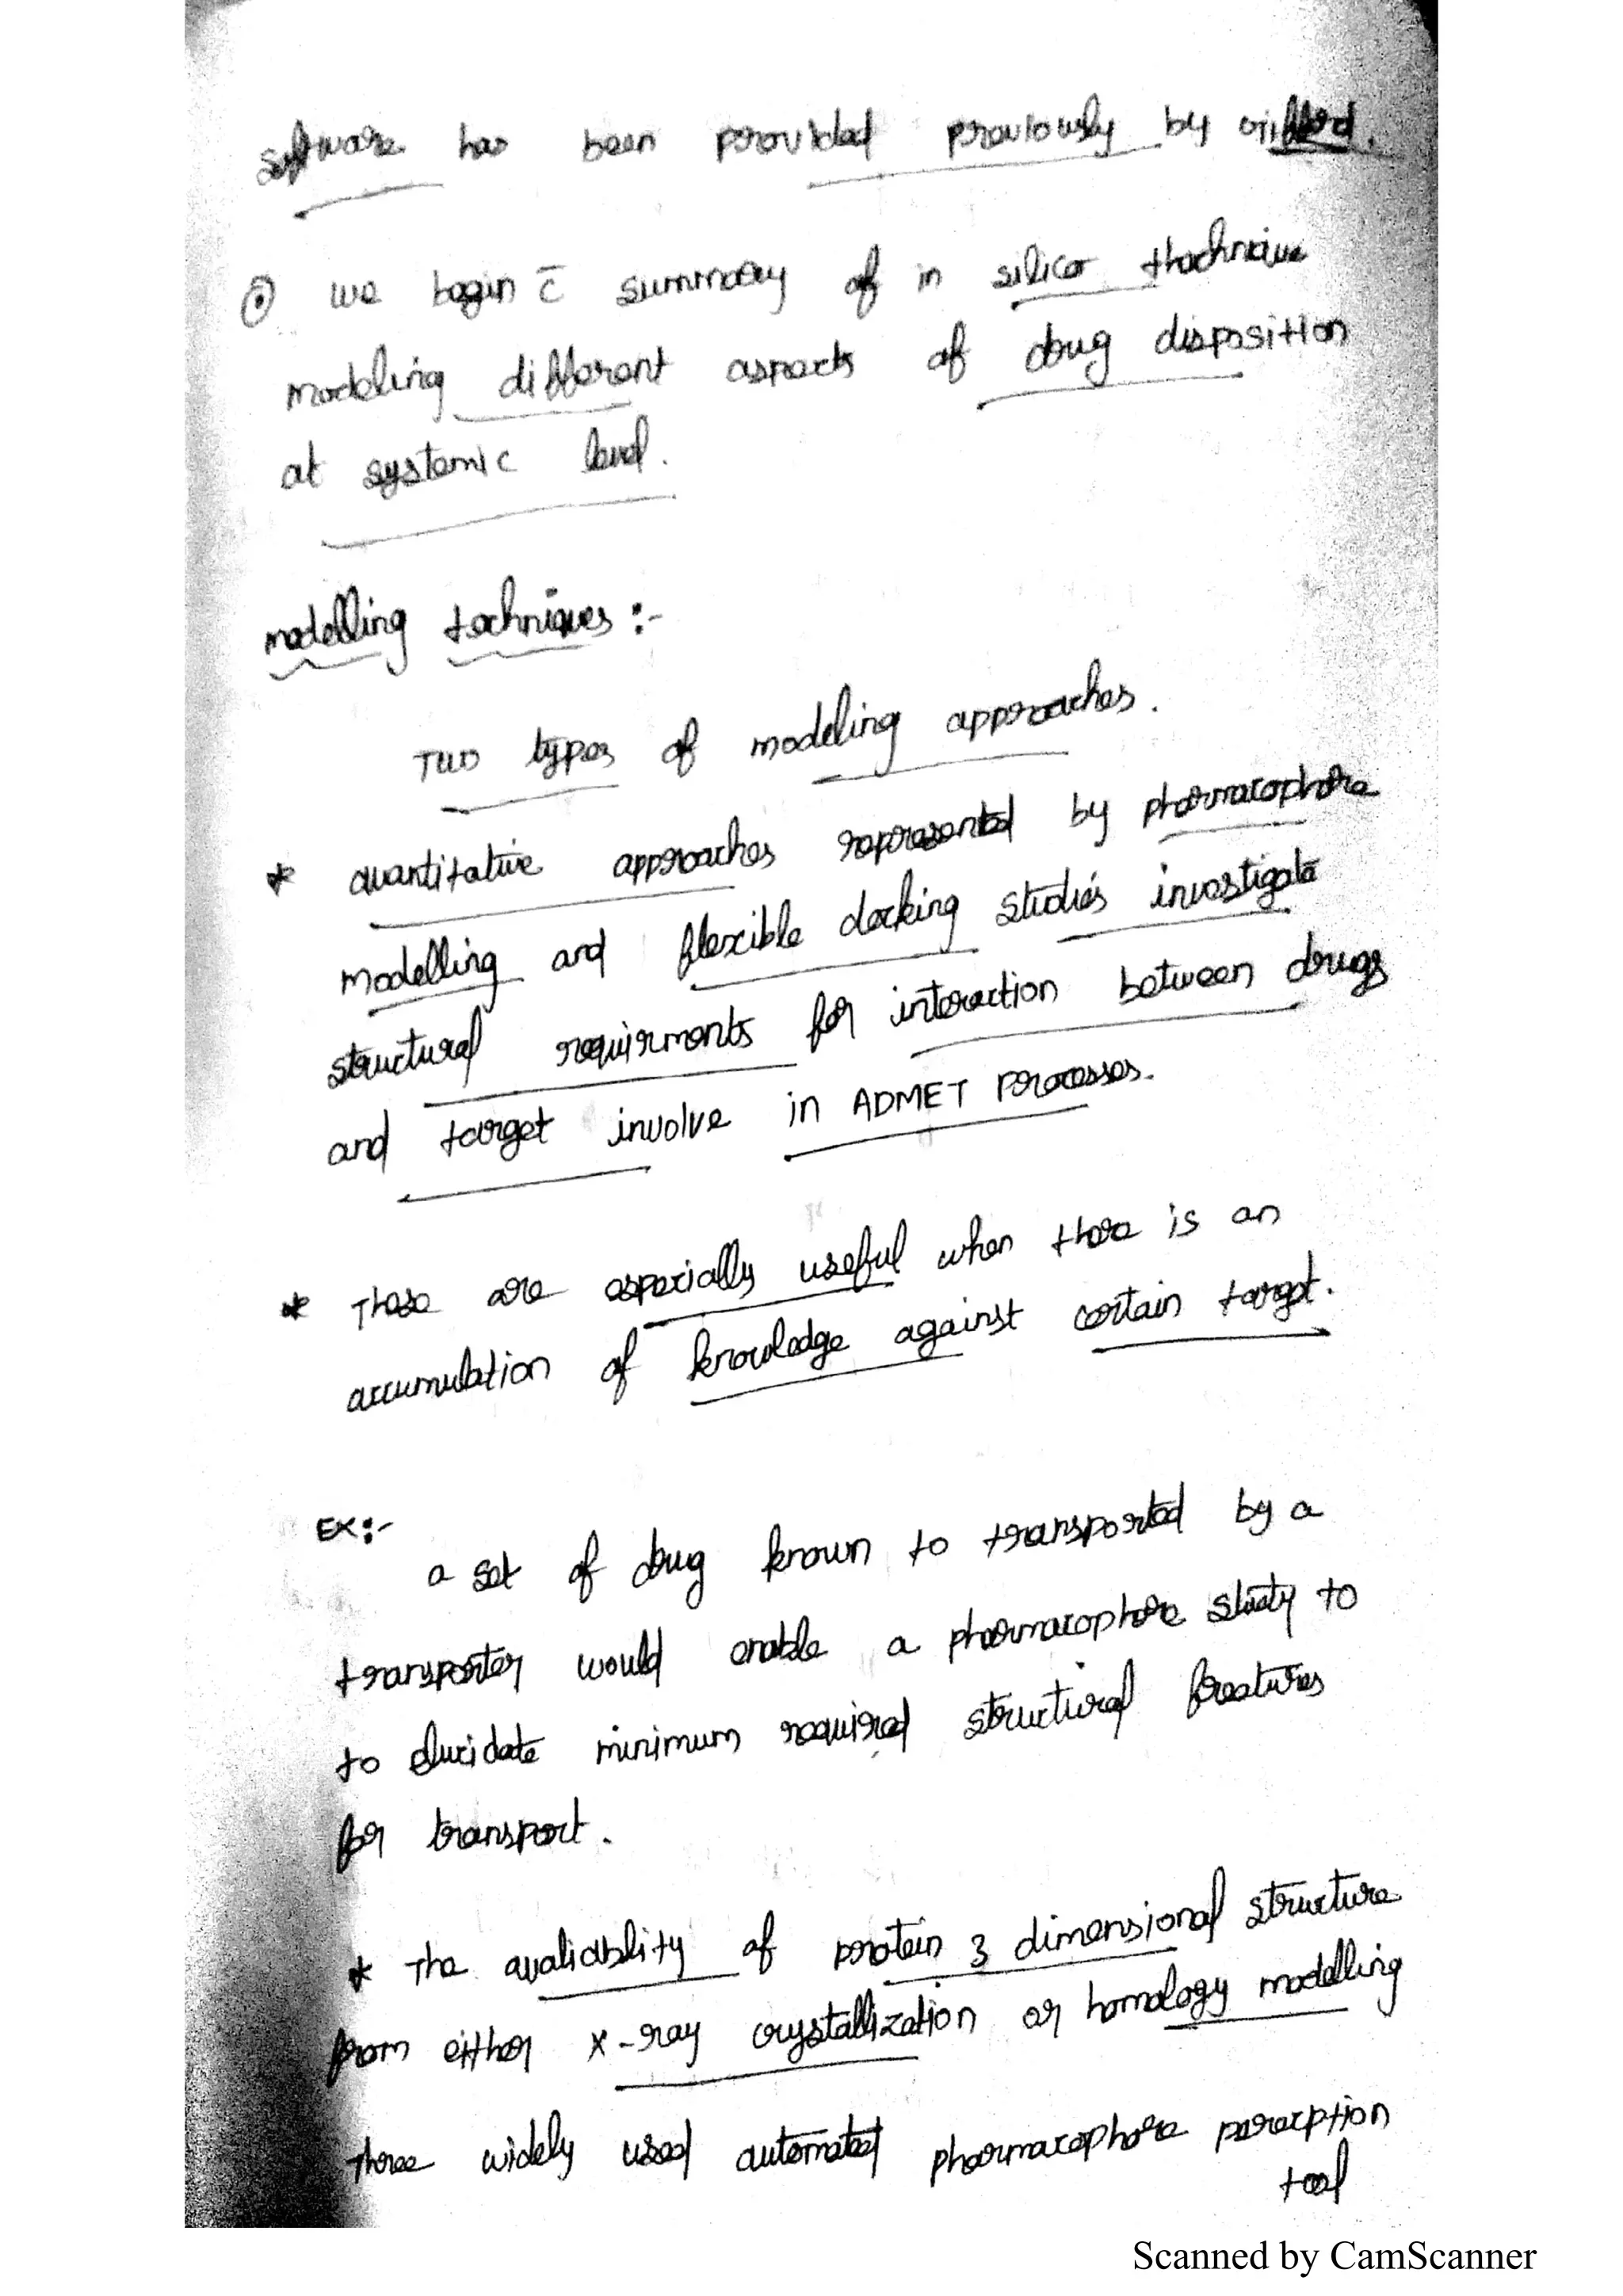 software has been provided previously by
⊙ we begin c̄ summary of in silico thechnique
modeling different aspects of drug disposition
at systemic level.
modelling techniques :-
Two types of modeling approaches.
* quantitative approaches represented by pharmacophore
modelling and flexible docking studies investigate
structural requirments for interaction between drugs
and target involve in ADMET processes.
* These are especially useful when there is an
accumulation of knowledge against certain target.
EX:-
a set of drug known to transported by a
transporter would enable a pharmacophore study to
to elucidate minimum required structural freatures
for transport.
* The avaliability of protein 3 dimensional structure
from either x-ray crystallization or homology modelling
three widely used automated pharmacophore perception
tool
Scanned by CamScanner